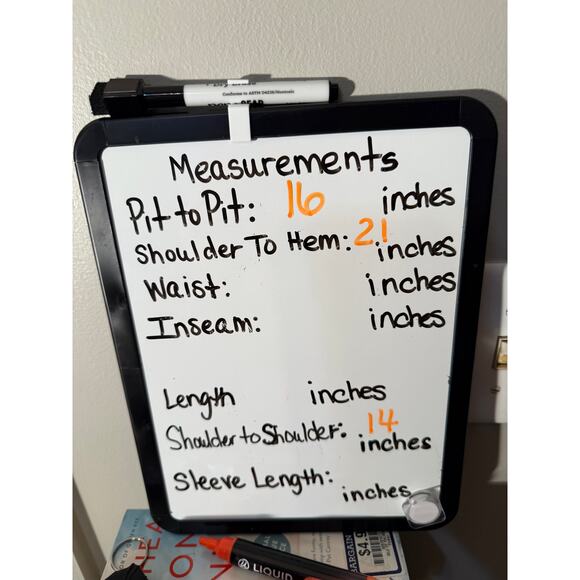 Conforms to ASTM D4236/Nontoxic
Measurements
Pit to Pit: 16 inches
Shoulder To Hem: 21 inches
Waist: inches
Inseam: inches
Length inches
Shoulder to Shoulder: 14 inches
Sleeve Length: inches
BARGAIN
LIQUID